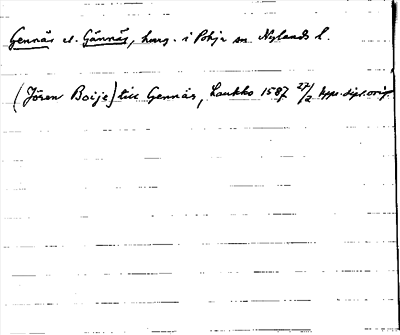 Gennäs el. Gännäs, herrg. i Pohja sn Nylands l.
(Jören Boije) till Gennäs, Laukko 1587 27/2 pppr. dipl. orig.